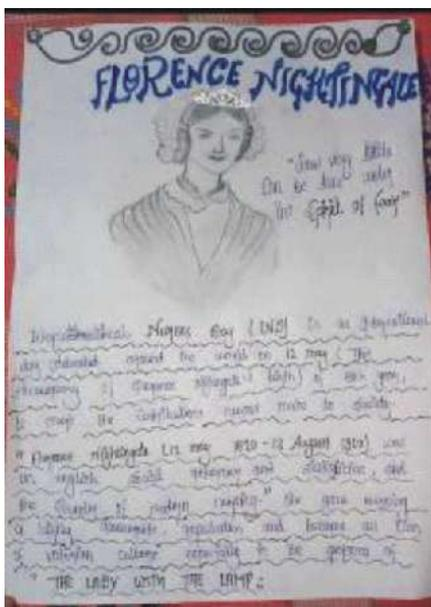 FLORENCE NIGHTINGALE
very little
Can be done under
The Spirit of fear"
Nurses Day (IND) Is an International
day around the world on 12 may ( The
of birth) of each year,
to mark the contributions nurses make to society
" Florence nightingale (12 may 1820 - 13 August 1910) was
an english social reformer and statistician, and
the founder of modern nursing " She gave nursing
a reputation and became an Icon
of culture especially in the persona of
" THE LADY WITH THE LAMP